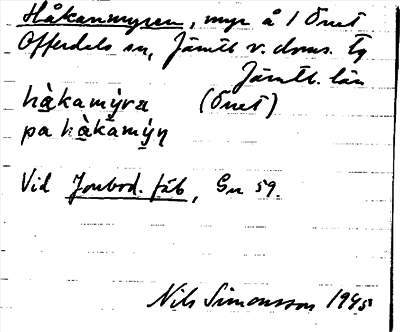 Håkanmyren, myr å 1 Önet
Offerdals sn, Jämtl v. doms. tg
Jämtl. län
hàkamýra (Önet)
pa hàkamýn
Vid Joubod. fäb, Gu 59.
Nils Simonsson 1945